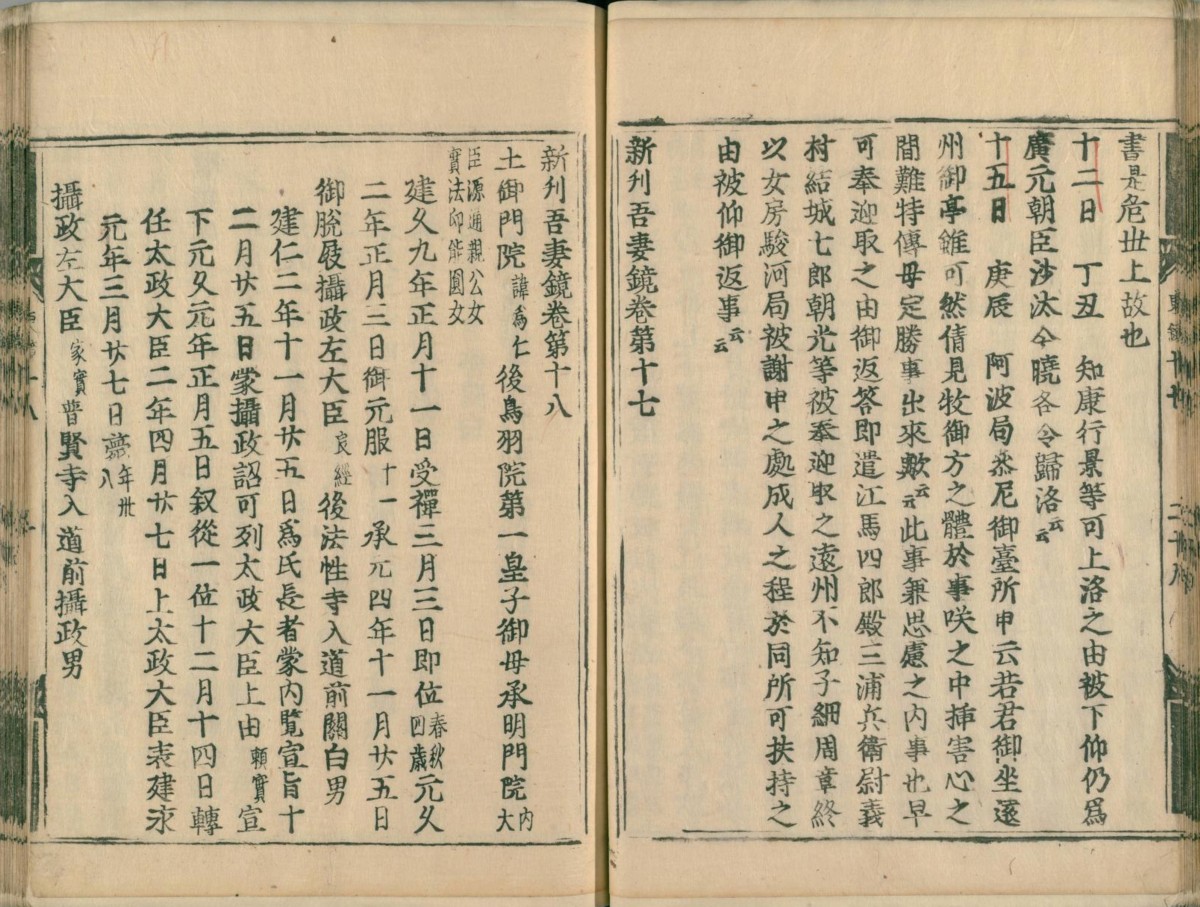 書是危世上故也
十二日　丁丑　知康行景等可上洛之由被下仰仍爲
廣元朝臣沙汰今曉各令歸洛云云
十五日　庚辰　阿波局參尼御臺所申云若君御坐遠
州御亭雖可然倩見牧御方之體於事咲之中揷害心之
間難特傳母定勝事出來歟云云此事兼思慮之内事也早
可奉迎取之由御返答即遣江馬四郎殿三浦兵衛尉義
村結城七郎朝光等被奉迎取之遠州不知子細周章終
以女房駿河局被謝申之處成人之程於同所可扶持之
由被仰御返事云云
新刋吾妻鏡卷第十七
新刋吾妻鏡卷第十八
土御門院諱爲仁後鳥羽院第一皇子御母承明門院内大
臣源通親公女實法印能圓女
建久九年正月十一日受禪三月三日即位春秋四歳元久
二年正月三日御元服十一承元四年十一月廿五日
御脱屐攝政左大臣良經後法性寺入道前關白男
建仁二年十一月廿五日爲氏長者蒙内覧宣旨十
二月廿五日蒙攝政詔可列太政大臣上由頼實宣
下元久元年正月五日叙從一位十二月十四日轉
任太政大臣二年四月廿七日上太政大臣表建永
元年三月廿七日薨年卅八
攝政左大臣家實普賢寺入道前攝政男